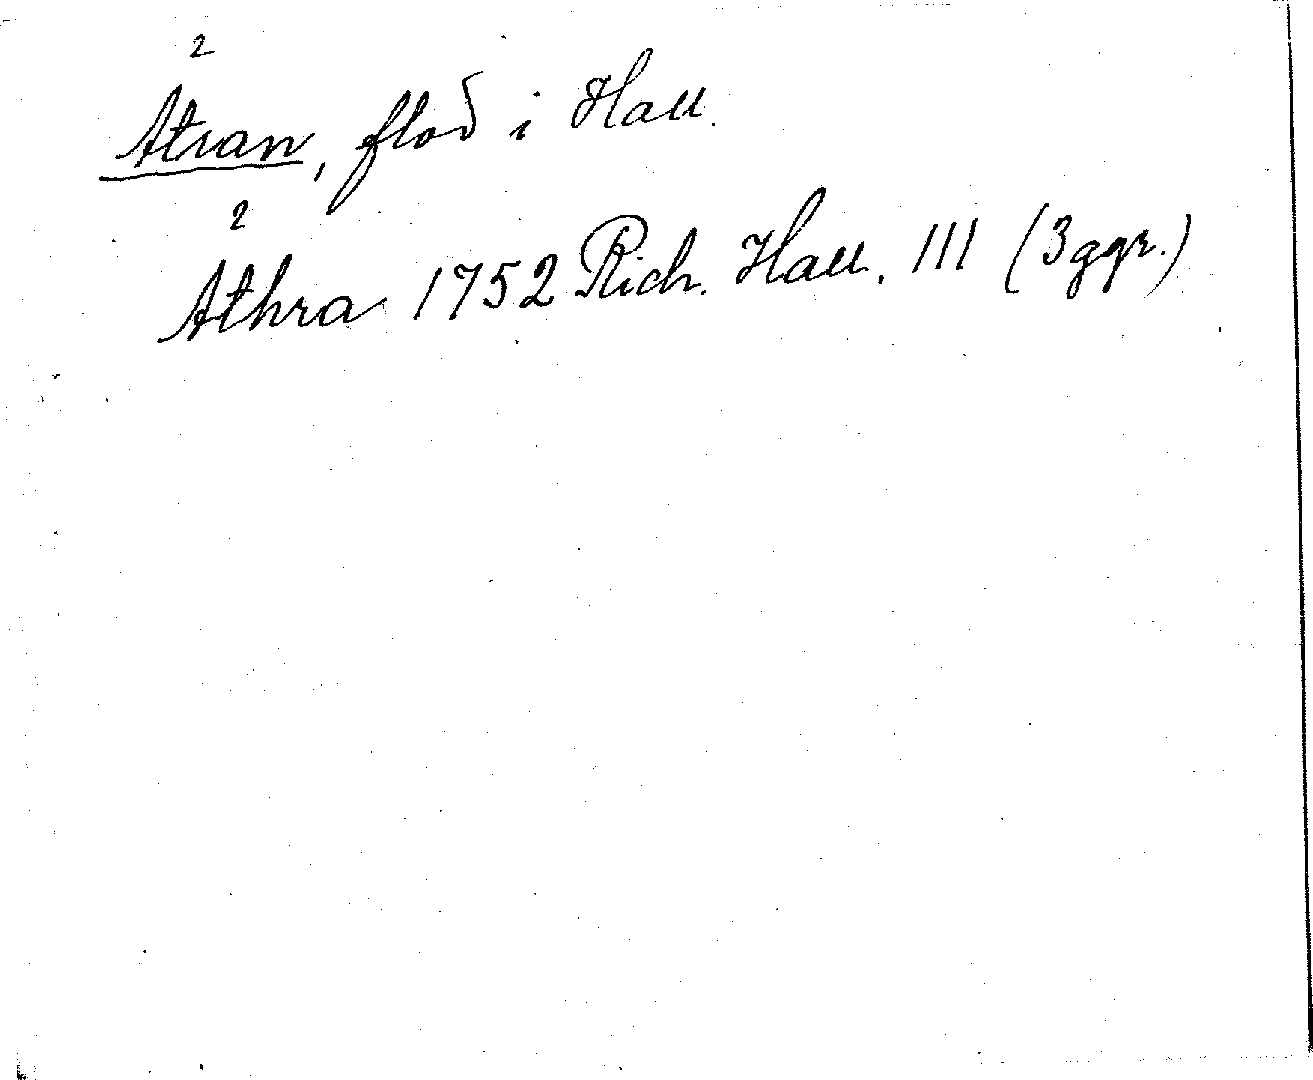 Ätran, flod i Hall.
Äthra 1752 Rich. Hall. 111 (3 ggr.)